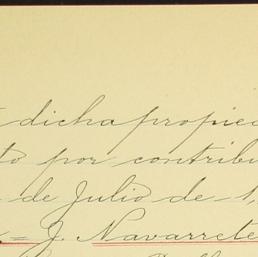 dicha propied
to por contribu
de Julio de 1,
= J. Navarrete